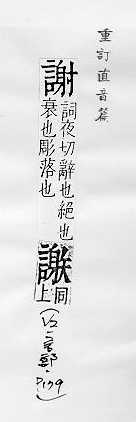 重訂直音篇
謝 詞夜切辭也絕也
衰也彫落也
𧬄 同上
P179